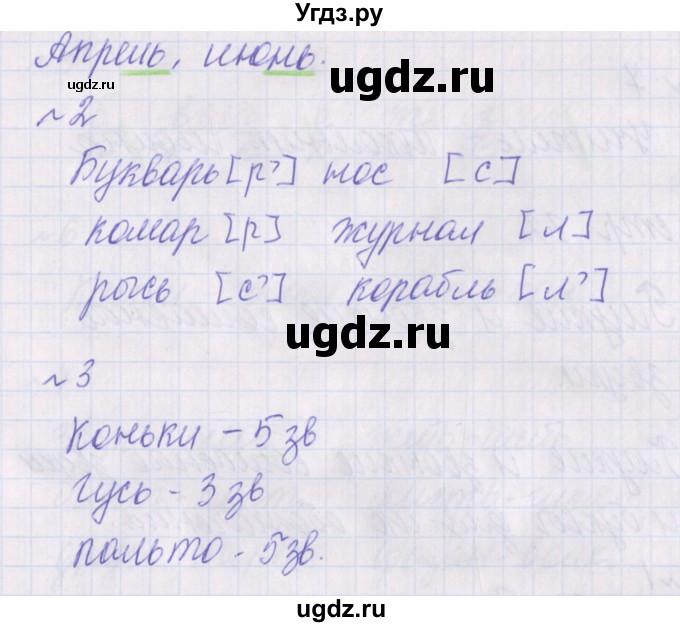 Угдз.ру
Апрель, июнь.
ugdz.ru
ugdz.ru
~2
Букварь [р'] нос [с]
комар [р] журнал [л]
ugdz.ru
рысь [с'] корабль [л']
ugdz.ru
~3
Коньки - 5 зв
гусь - 3 зв
ugdz.ru
пальто - 5 зв.
ugdz.ru